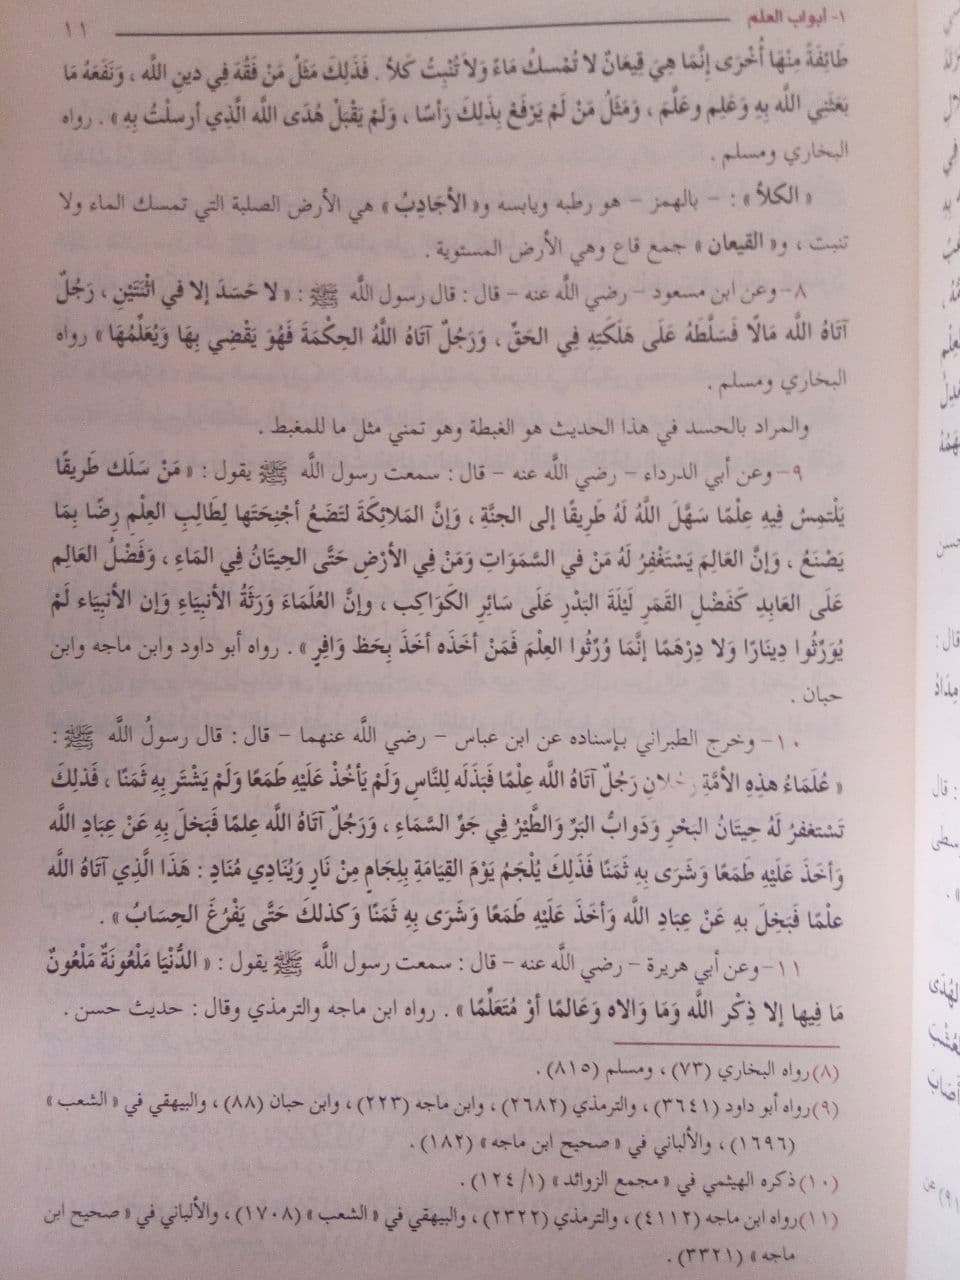 ١- أبواب العلم ١١
طَائِفَةً مِنْهَا أُخْرَى إِنَّمَا هِيَ قِيعَانٌ لا تُمْسكُ مَاءً وَلاَ تُنْبِتُ كَلأً . فَذَلِكَ مَثَلُ مَنْ فَقُهَ فِي دينِ اللَّه ، وَنَفَعَهُ مَا
بَعَثَنِي اللَّه بِهِ وَعَلِم وعَلَّمَ ، وَمَثَلُ مَنْ لَمْ يَرْفَعْ بِذَلِكَ رَأسًا ، وَلَمْ يَقْبَلْ هُدَى اللَّه الَّذِي أُرسلْتُ بِهِ » . رواه
البخاري ومسلم .
« الكلأ » : – بالهمز – هو رطبه ويابسه و« الأجَادِبُ » هي الأرض الصلبة التي تمسك الماء ولا
تنبت ، و« القيعان » جمع قاع وهي الأرض المستوية .
٨- وعن ابن مسعود – رضي اللَّه عنه – قال : قال رسول اللَّه ﷺ : « لا حَسَدَ إلا في اثْنَتَيْنِ ، رَجُلٌ
آتَاهُ اللَّه مَالًا فَسَلَّطَهُ عَلَى هَلَكَتِهِ فِي الحَقِّ ، وَرَجُلٌ آتَاهُ اللَّهُ الحِكْمَةَ فَهُوَ يَقْضِي بِهَا وَيُعَلِّمُهَا » رواه
البخاري ومسلم .
والمراد بالحسد في هذا الحديث هو الغبطة وهو تمني مثل ما للمغبط .
٩- وعن أبي الدرداء – رضي اللَّه عنه – قال : سمعت رسول اللَّه ﷺ يقول : « مَنْ سَلَك طَرِيقًا
يَلْتَمِسُ فِيهِ عِلْمًا سَهَّلَ اللَّهُ لَهُ طَرِيقًا إلى الجنَّةِ ، وَإنَّ المَلائِكَةَ لتَضَعُ أجْنِحَتَها لِطَالِبِ العِلْمِ رِضًا بِمَا
يَصْنَعُ ، وَإنَّ العَالِمَ يَسْتَغْفِرُ لَهُ مَنْ في السَّمَوَاتِ وَمَنْ فِي الأَرْضِ حَتَّى الحِيتَانُ فِي المَاءِ ، وَفَضْلُ العَالِم
عَلَى العَابِدِ كَفَضْلِ القَمَرِ لَيْلَةَ البَدْرِ عَلَى سَائِرِ الكَوَاكِبِ ، وإنَّ العُلَمَاءَ وَرَثَةُ الأنبِيَاءِ وَإن الأنبِيَاء لَمْ
يُوَرِّثُوا دِينَارًا وَلا دِرْهَمًا إنَّمَا وُرِّثُوا العِلْمَ فَمَنْ أخَذَه أخَذَ بِحَظ وَافِرٍ » . رواه أبو داود وابن ماجه وابن
حبان .
١٠- وخرج الطبراني بإسناده عن ابن عباس – رضي اللَّه عنهما – قال : قال رسولُ اللَّه ﷺ :
« عُلَمَاءُ هذِهِ الأمَّةِ رَجُلانِ رَجُلٌ آتَاهُ اللَّه عِلْمًا فَبَذَلَه لِلنَّاسِ وَلَمْ يَأخُذْ عَلَيْهِ طَمَعًا وَلَمْ يَشْتَرِ بِهِ ثَمَنًا ، فَذلِكَ
تَسْتغفرُ لَهُ حِيتَانُ البَحْرِ وَدَوابُّ البَرِّ وَالطَّيْرُ فِي جَوِّ السَّمَاءِ ، وَرَجُلٌ آتَاهُ اللَّه عِلمًا فَبَخلَ بِهِ عَنْ عِبَادِ اللَّه
وَأخَذَ عَلَيْهِ طَمَعًا وَشَرَى بِهِ ثَمَنًا فَذلِكَ يُلْجَمُ يَوْمَ القِيَامَةِ بِلِجَامٍ مِنْ نَارٍ وَيُنَادِي مُنَادٍ : هَذَا الَّذِي آتَاهُ اللَّه
عِلْمًا فَبَخِلَ بِهِ عَنْ عِبَادِ اللَّه وَأخَذَ عَلَيْهِ طَمَعًا وَشَرَى بِهِ ثَمَنًا وَكذلكَ حَتَّى يَفْرُغَ الحِسَابُ » .
١١- وعن أبي هريرة – رضي اللَّه عنه – قال : سمعت رسول اللَّه ﷺ يقول : « الدُّنْيَا مَلْعُونَةٌ مَلْعُونٌ
مَا فِيها إلا ذِكْر اللَّه وَمَا وَالاه وَعَالمًا أوْ مُتَعَلِّمًا » . رواه ابن ماجه والترمذي وقال : حديث حسن .
(٨) رواه البخاري (٧٣) ، ومسلم (٨١٥) .
(٩) رواه أبو داود (٣٦٤١) ، والترمذي (٢٦٨٢) ، وابن ماجه (٢٢٣) ، وابن حبان (٨٨) ، والبيهقي في « الشعب »
(١٦٩٦) ، والألباني في « صحيح ابن ماجه » (١٨٢) .
(١٠) ذكره الهيثمي في « مجمع الزوائد » (١/ ١٢٤) .
(١١) رواه ابن ماجه (٤١١٢) ، والترمذي (٢٣٢٢) ، والبيهقي في « الشعب » (١٧٠٨) ، والألباني في « صحيح ابن
ماجه » (٣٣٢١) .